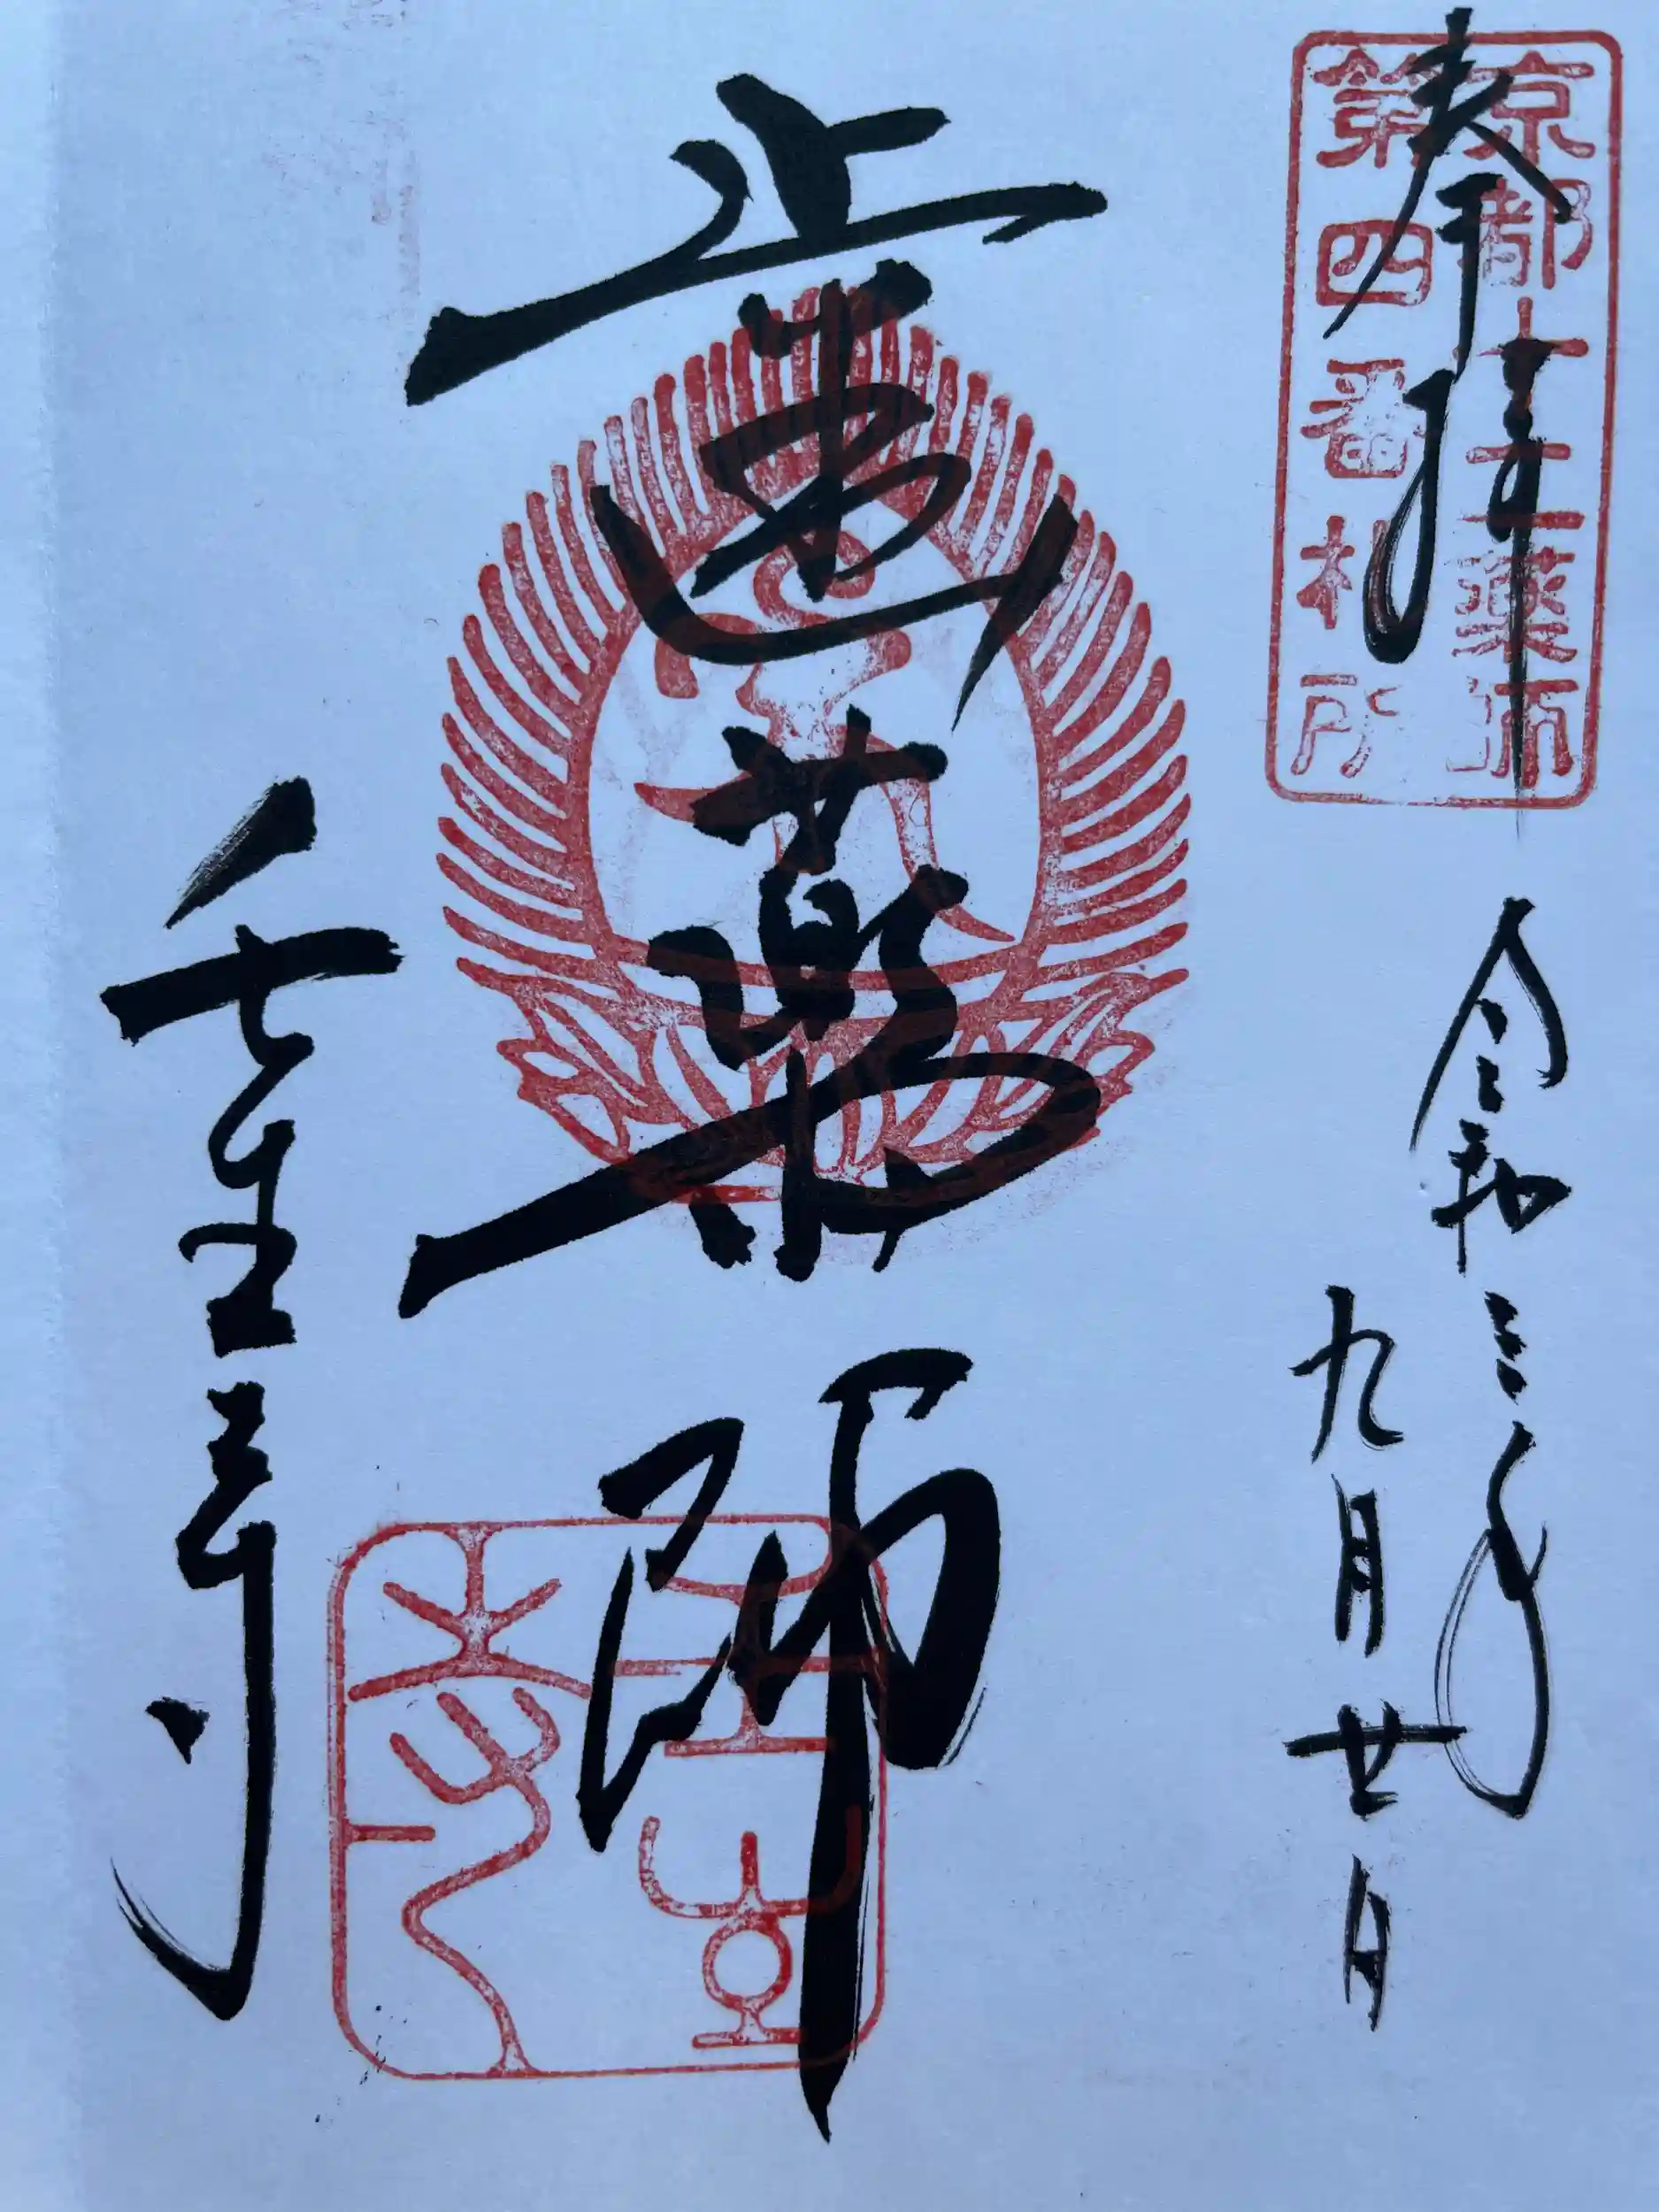 京都十二薬師
第四番札所
奉拝
令和三年
九月廿日
歯薬師
壬生寺